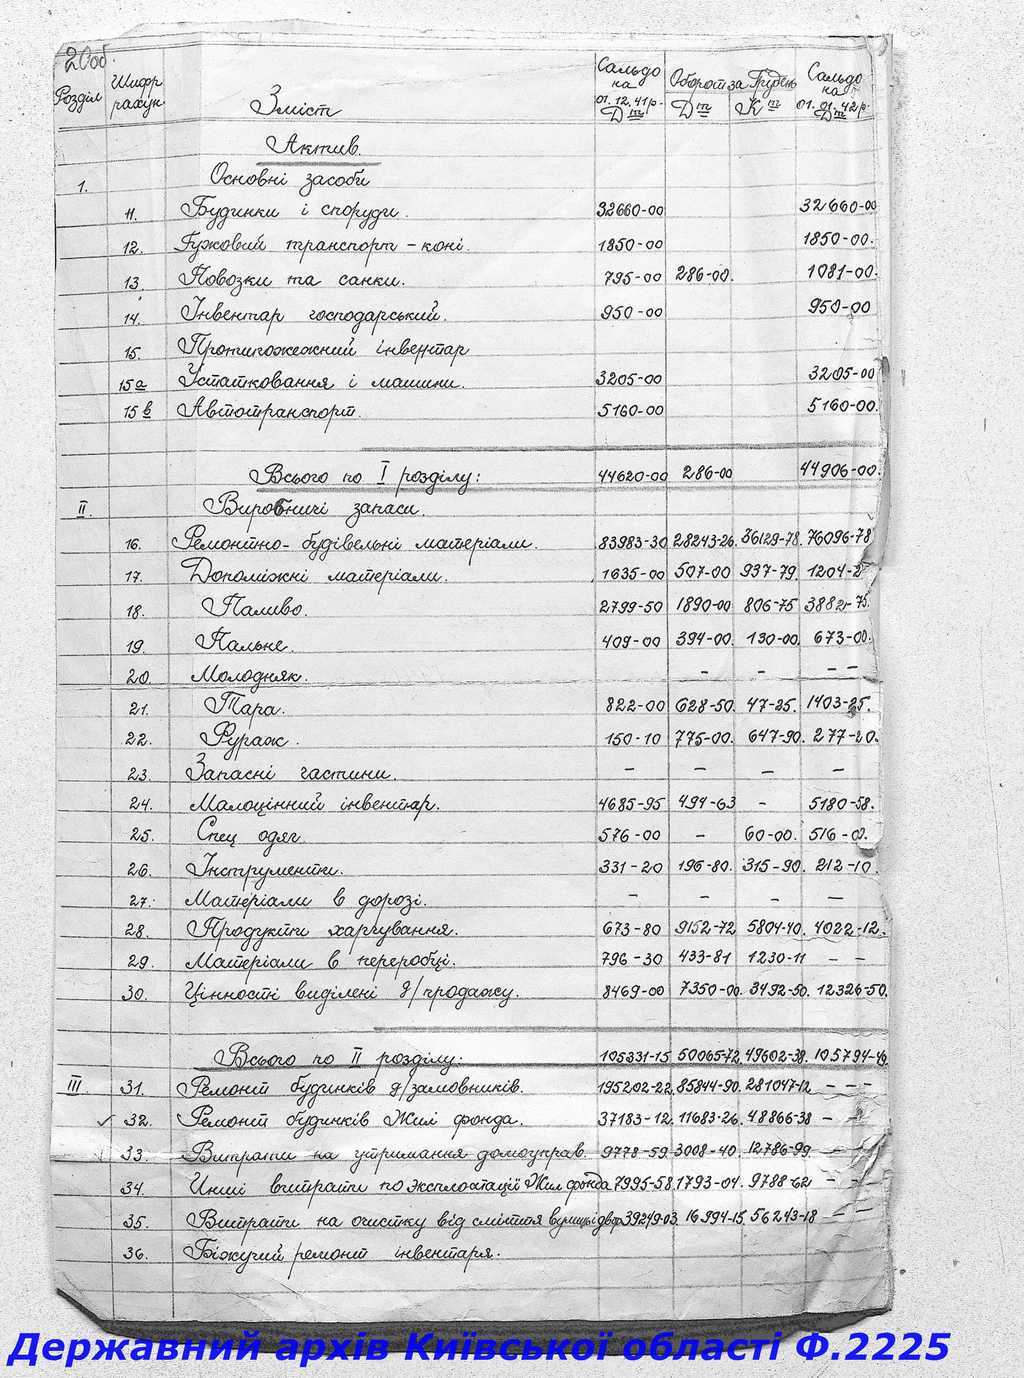 20об.
Розділ Шифр рахун Зміст Сальдо на 01.12.41р. Дт Оборот за Грудень Дт Кт Сальдо на 01.01.42р. Дт
Актив.
1. Основні засоби
11. Будинки і споруди. 32660-00 32660-00
12. Гужовий транспорт - коні. 1850-00 1850-00.
13. Повозки та санки. 795-00 286-00. 1081-00.
14. Інвентар господарський. 950-00 950-00
15. Протипожежний інвентар
15а Устатковання і машини. 3205-00 3205-00
15в Автотранспорт. 5160-00 5160-00.
Всього по I розділу: 44620-00 286-00 44906-00.
II. Виробничі запаси.
16. Ремонтно-будівельні матеріали. 83983-30 28243-26. 36129-78. 76096-78
17. Допоміжні матеріали. 1635-00 507-00 937-79. 1204-2
18. Паливо. 2799-50 1890-00 806-75 3882-75.
19. Пальне. 409-00 394-00. 130-00. 673-00.
20. Молодняк. - - - -
21. Тара. 822-00 628-50. 47-25. 1403-25.
22. Фураж. 150-10 775-00. 647-90. 277-20.
23. Запасні частини. - - - -
24. Малоцінний інвентар. 4685-95 494-63 - 5180-58.
25. Спец одяг. 576-00 - 60-00. 516-00.
26. Інструменти. 331-20 196-80. 315-90. 212-10.
27. Матеріали в дорозі. - - - -
28. Продукти харчування. 673-80 9152-72 5804-40. 4022-12.
29. Матеріали в переробці. 796-30 433-81 1230-11 - -
30. Цінності виділені д/продажу. 8469-00 7350-00. 3492-50. 12326-50.
Всього по II розділу: 105331-15 50065-72. 49602-38. 105794-49.
III. 31. Ремонт будинків д/замовників. 195202-22. 85844-90. 281047-12 - - -
32. Ремонт будинків Жил фонда. 37183-12. 11683-26. 48866-38 - -
33. Витрати на утримання домоуправ. 9778-59 3008-40. 12786-99 - -
34. Инші витрати по эксплоатації Жил фонда 7995-58. 1793-04. 9788-62 - -
35. Витрати на очистку від сміття вулиць і двор 39249-03. 16994-15. 56243-18 - -
36. Біжучий ремонт інвентаря.
Державний архів Київської області Ф.2225